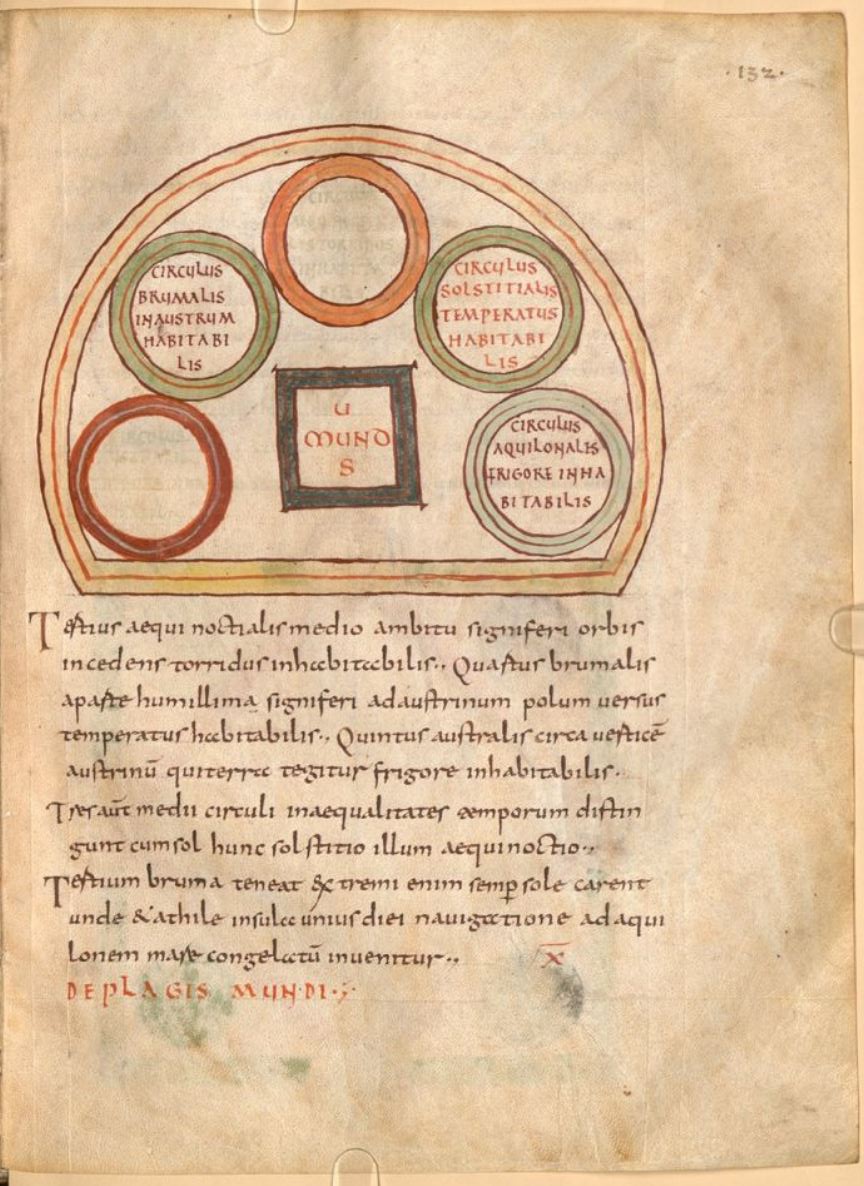 ·132·
CIRCULUS
BRUMALIS
INAUSTRUM
HABITABI
LIS
CIRCULUS
SOLSTITIALIS
TEMPERATUS
HABITABI
LIS
U
MUND
S
CIRCULUS
AQUILONALIS
FRIGORE INHA
BITABILIS
Tertius aequinoctialis medio ambitu signiferi orbis
incedens torridus inhabitabilis. Quartus brumalis
a parte humillima signiferi ad austrinum polum versus
temperatus habitabilis. Quintus australis circa verticē
austrinū qui terra tegitur frigore inhabitabilis.
Tres aūt medii circuli inaequalitates temporum distin
gunt cum sol hunc solstitio illum aequinoctio.
Tertium bruma teneat extremi enim semp sole carent
unde & athile insula unius diei navigatione ad aqui
lonem mare congelatū invenitur.
X̅
DE PLAGIS MUNDI